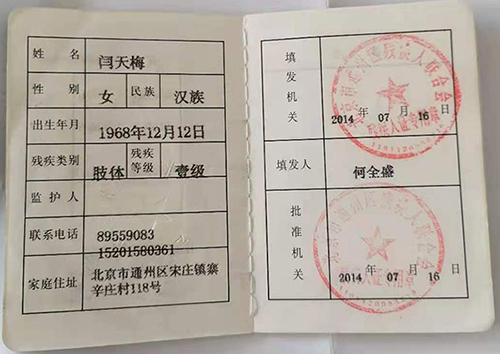 姓名 闫天梅
性别 女 民族 汉族
出生年月 1968年12月12日
残疾类别 肢体 残疾等级 壹级
监护人
联系电话 89559083
15201580361
家庭住址 北京市通州区宋庄镇寨
辛庄村118号
填发机关
北京市通州区残疾人联合会
残疾人证专用章
2014 年 07 月 16 日
填发人 何全盛
批准机关
北京市通州区残疾人联合会
残疾人证专用章
2014 年 07 月 16 日